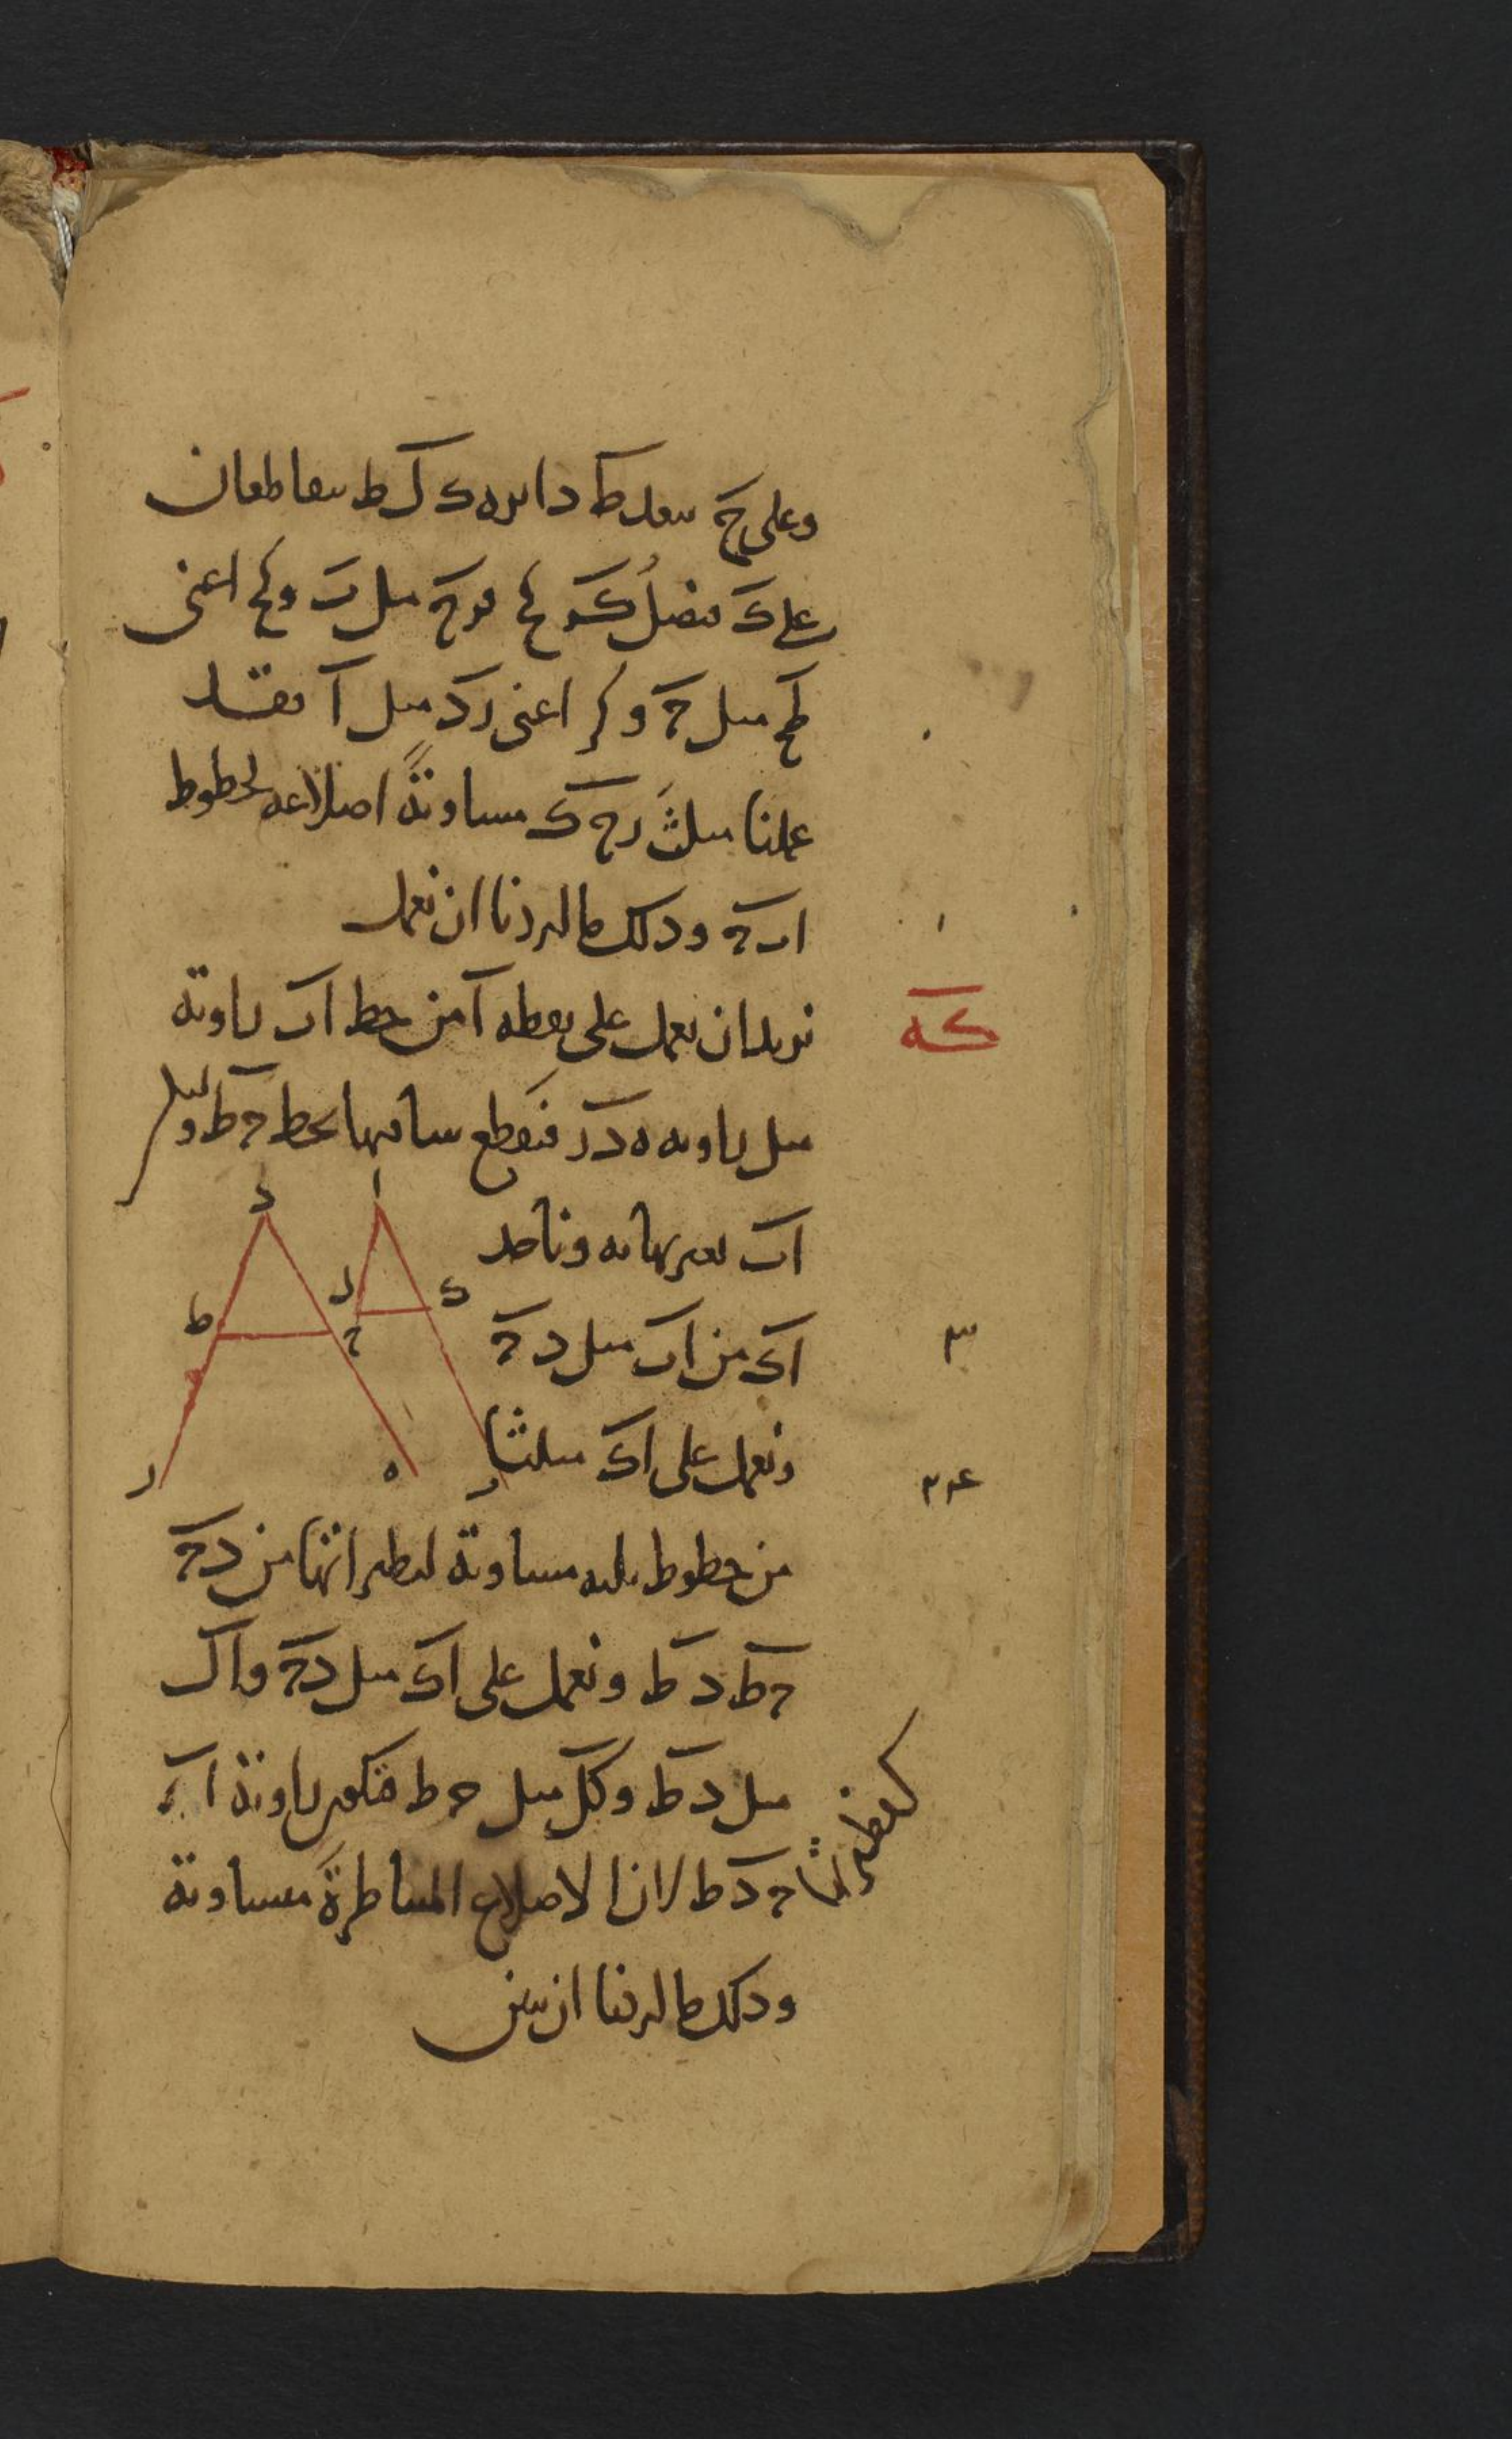 وعلى ح ببعد حط دائرة ك ل ط يتقاطعان
على ك فنصل كر كح فرح مثل ب وكح اعنى
طح مثل ح وكر اعنى رد مثل ا فقد
عملنا مثلث رح ك مساوية اضلاعه لخطوط
اب ح وذلك ما اردنا ان نعمل
كه
نريد ان نعمل على نقطة ا من خط اب زاوية
مثل زاوية ه د ر فنقطع ساقيها بخط ح ط وليكن
اب بغير نهاية وناخذ
اك من اب مثل د ح
٣
ونعمل على اك مثلثا
٢٣٤
من خطوط ثلثة مساوية لنظيراتها من د ح
ح ط د ط ونعمل على اك مثل د ح وال
مثل د ط وكل مثل ح ط فتكون زاوية ا
ح د ط لان الاضلاع المتناظرة متساوية
وذلك ما اردنا ان نبين
د
ا
ل
ك
ط
ح
ر
ه
ب